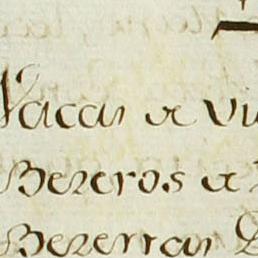 Vacas a Vi
Bezeros a
Bezerras